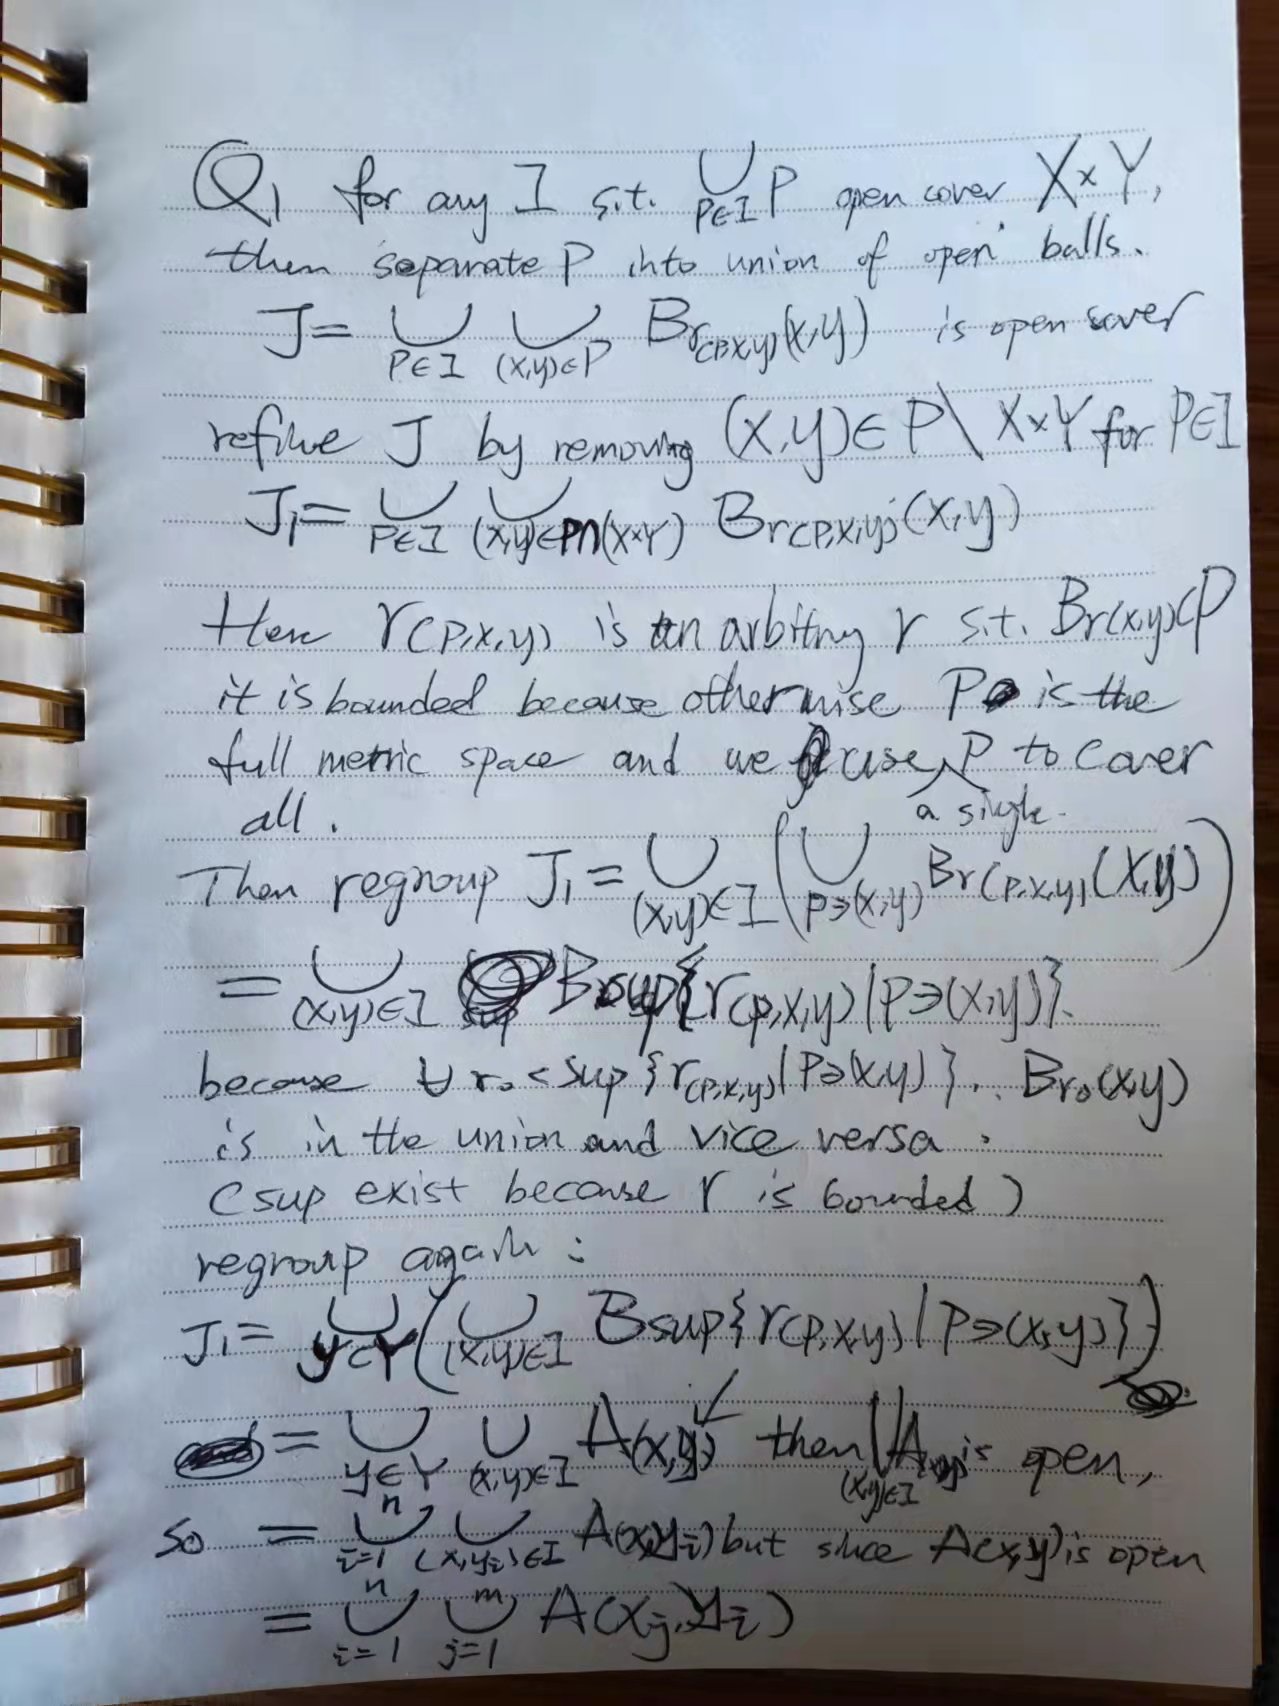 Q1 for any I s.t. ⋃_{P∈I} P open cover X×Y,
then separate P into union of open balls.
J = ⋃_{P∈I} ⋃_{(x,y)∈P} B_{r(P,x,y)}(x,y) is open cover
refine J by removing (x,y)∈P\X×Y for P∈I
J₁ = ⋃_{P∈I} ⋃_{(x,y)∈P∩(X×Y)} B_{r(P,x,y)}(x,y)
Here r(P,x,y) is an arbitrary r s.t. Br(x,y)⊂P
it is bounded because otherwise P is the
full metric space and we use a single P to cover
all.
Then regroup J₁ = ⋃_{(x,y)∈I} (⋃_{P∋(x,y)} B_{r(P,x,y)}(x,y))
= ⋃_{(x,y)∈I} B_{sup{r(p,x,y)|P∋(x,y)}}.
because ∀ r₀ < sup{r(P,x,y)|P∋(x,y)}. Br₀(x,y)
is in the union and vice versa.
(sup exist because r is bounded)
regroup again:
J₁ = ⋃_{y∈Y} (⋃_{(x,y)∈I} B_{sup{r(P,x,y)|P∋(x,y)}})
= ⋃_{y∈Y} ⋃_{(x,y)∈I} A(x,y) then ⋃_{(x,y)∈I} A(x,y) is open,
so = ⋃_{i=1}^{n} ⋃_{(x,y_i)∈I} A(x,y_i) but since A(x,y) is open
= ⋃_{i=1}^{n} ⋃_{j=1}^{m} A(x_j,y_i)